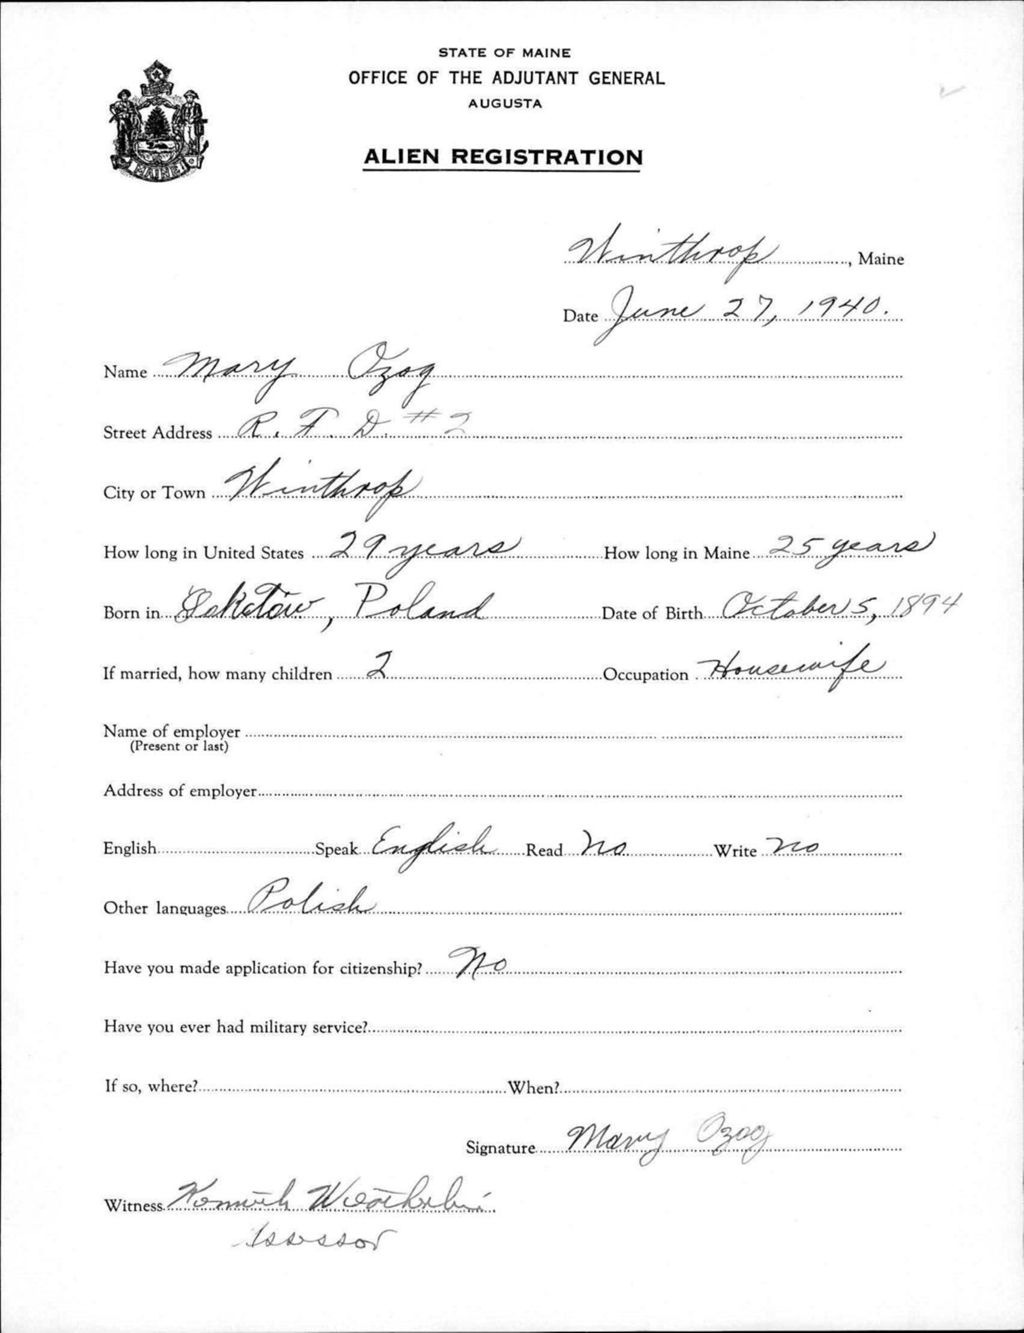 STATE OF MAINE
OFFICE OF THE ADJUTANT GENERAL
AUGUSTA
ALIEN REGISTRATION
MAINE
Winthrop, Maine
Date June 27, 1940.
Name Mary Ozog
Street Address R. F. D. #2
City or Town Winthrop
How long in United States 29 years How long in Maine 25 years
Born in , Poland Date of Birth October 5, 1894
If married, how many children 2 Occupation Housewife
Name of employer
(Present or last)
Address of employer
English Speak English Read No Write no
Other languages Polish
Have you made application for citizenship? No
Have you ever had military service?
If so, where? When?
Signature Mary Ozog
Witness Kenneth
Assessor